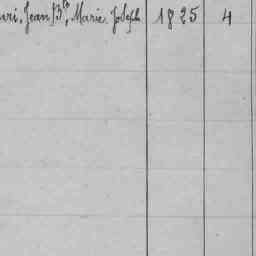 uri, Jean Bte, Marie Joseph 1825 4